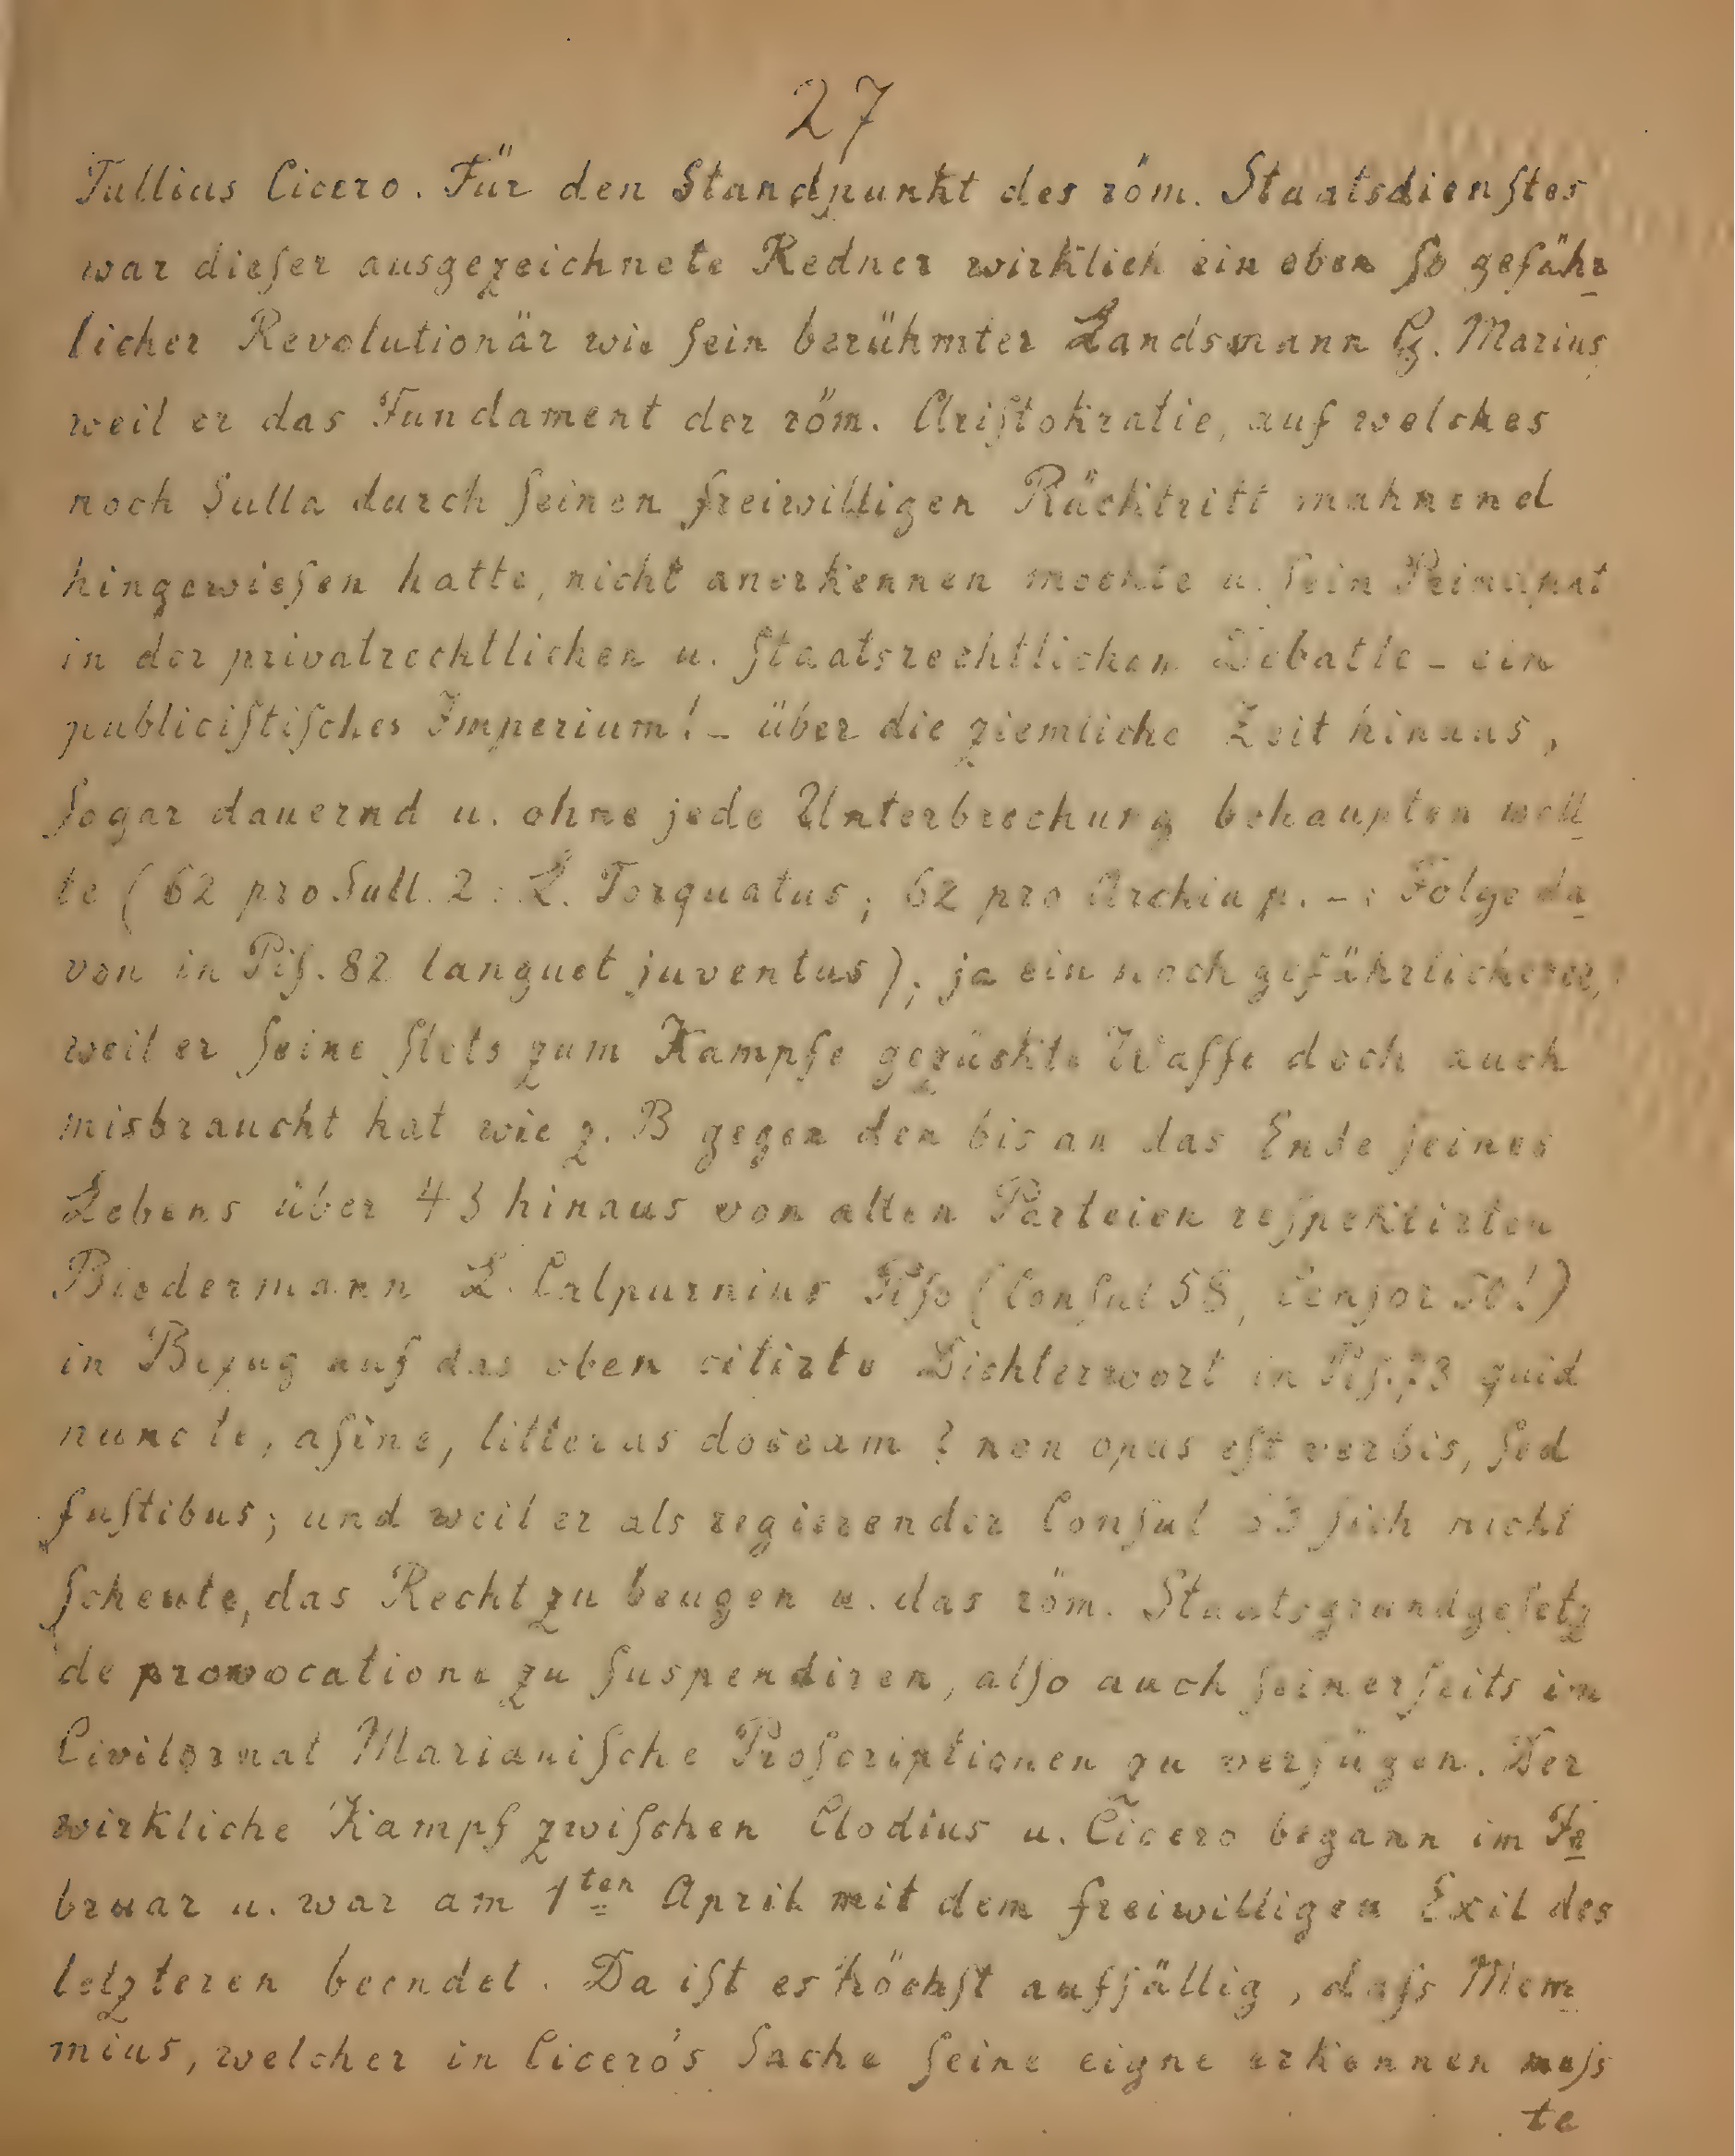 27
Tullius Cicero. Für den Standpunkt des röm. Staatsdienſtes
war dieſer ausgezeichnete Redner wirklich ein eben ſo gefähr
licher Revolutionär wie ſein berühmter Landsmann G. Marius
weil er das Fundament der röm. Ariſtokratie, auf welches
noch Sulla durch ſeinen freiwilligen Rücktritt mahnend
hingewieſen hatte, nicht anerkennen mochte u. ſein Principat
in der privatrechtlichen u. ſtaatsrechtlichen Debatte - ein
publiciſtiſches Imperium! - über die ziemliche Zeit hinaus,
ſogar dauernd u. ohne jede Unterbrechung behaupten woll
te (62 pro Sull. 2: L. Torquatus; 62 pro Archia p. - : Folge da
von in Piſ. 82 languet juventus); ja ein noch gefährlicherer,
weil er ſeine ſtets zum Kampfe gezückte Waffe doch auch
misbraucht hat wie z. B gegen den bis an das Ende ſeines
Lebens über 43 hinaus von allen Parteien reſpektirten
Biedermann L. Calpurnius Piſo (Conſul 58, Cenſor 50!)
in Bezug auf das oben citirte Dichterwort in Piſ. 73 quid
nunc te, aſine, litteras doceam? non opus eſt verbis, ſed
fuſtibus; und weil er als regierender Conſul 63 ſich nicht
ſcheute, das Recht zu beugen u. das röm. Staatsgrundgeſetz
de provocatione zu ſuspendiren, alſo auch ſeinerſeits im
Civilornat Marianiſche Proſcriptionen zu verfügen. Der
wirkliche Kampf zwiſchen Clodius u. Cicero begann im Fe
bruar u. war am 1ten April mit dem freiwilligen Exil des
letzteren beendet. Da iſt es höchſt auffällig, daſs Mem
mius, welcher in Cicero's Sache ſeine eigne erkennen muſs
te